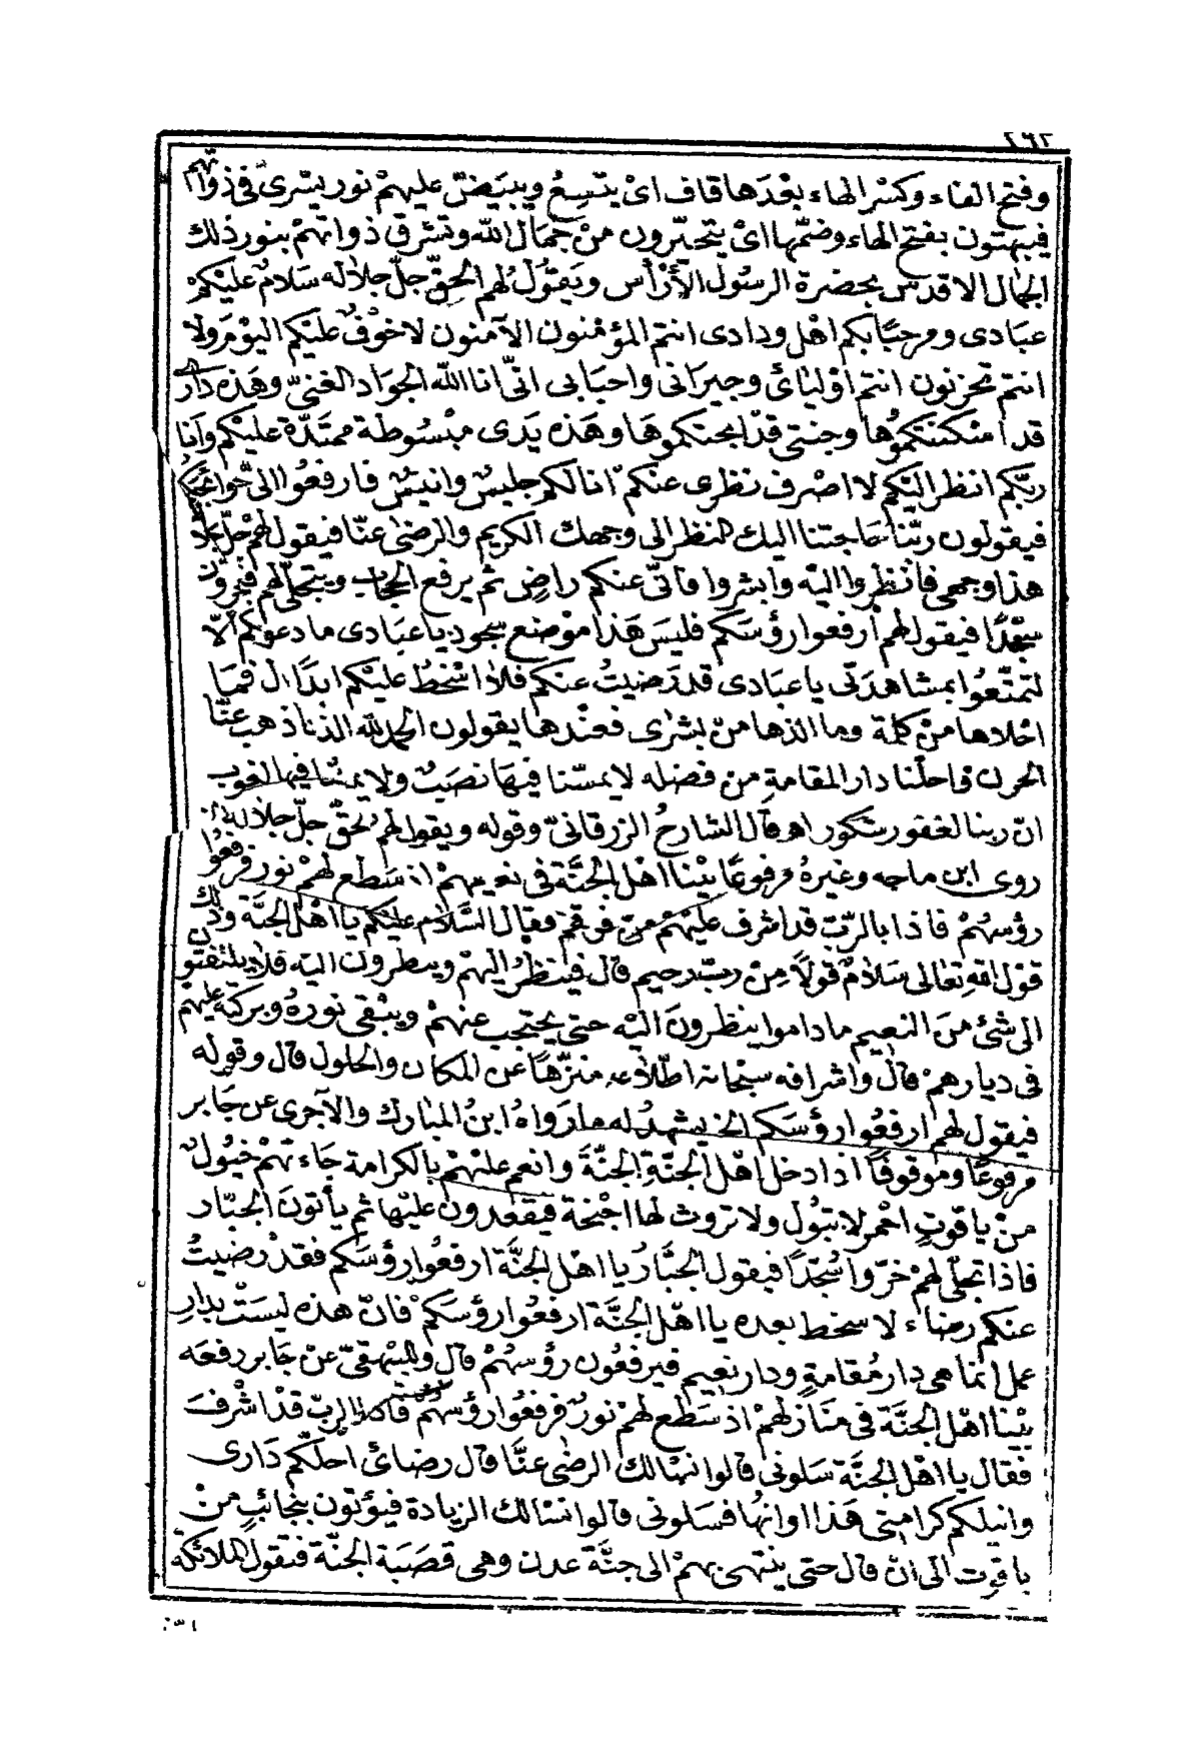 ٢٩٢
وفتح الفاء وكسْر الهاء بعْدَها قاف اىْ يتّسِعُ ويبيَضّ عليهمْ نور يسْرىٰ فى ذواتهم
فيبهتون بفتح الهاء وضمّها اىْ يتحيّرون منْ جمَال اللّه وتشرق ذواتهمْ بنور ذٰلك
الجمٰال الاقدس بحضرة الرسُول الأرْأس ويَقُولُ لهم الحقّ جلّ جلاله سَلامٌ عليكمْ
عبَادى ومرحبًا بكم اهْل ودادى انتم المؤمْنون الآمنون لا خوْفٌ عليْكم اليوْمَ ولا
انتمْ تحزنون انتم اوْليَائ وجيرَانى واحبَابى انّى انا اللّه الجوَاد الغنىّ وهَذه دَارى
قد اسْكنتكموُها وجنتى قدْ ابحتكموهَا وهَذه يَدى مبْسُوطة ممتَدّة عليْكم وأنا
ربّكم انظر اليْكم لا اصْرف نظرى عنكمْ انا لكمْ جليسٌ وانيسٌ فارفعُوا الىّ حوائجكم
فيقولون ربّنا حَاجتنا اليك النظر الى وجهك الكريم والرضىٰ عنّا فيقول لهمْ جلّ جلاله
هذا وجهى فانْظروا اليْه وابشروا فانّى عنكم راضٍ ثمّ يرفع الحجاب ويتجلّى لهم فيخرّون
سجّدًا فيقول لهم ارفعوا رؤسَكم فليسَ هَذا موْضع سجود يا عبَادى ما دعوتكم الّا
لتمتّعُوا بمشاهدَتى يا عبَادى قد رَضيتُ عنكم فلا اسْخطُ عليْكم ابدًا ال فمَا
احْلاها منْ كلمة وما الذّها منْ بشرٰى فعنْدها يقولون الحمد للّه الذى اذهب عنّا
الحزن واحلّنا دار المقامةِ من فضله لا يمسّنا فيهَا نصَبٌ ولا يمسّنا فيها لغوب
انّ ربنا لغفور شكور اه قال الشارحُ الزرقانىّ وقوله ويقول لهم الحقّ جلّ جلاله الخ
روى ابن ماجه وغيرهُ مرفوعًا بيْنا اهْل الجنَّة فى نعيمهمْ اذ سَطع لهمْ نور فرفعُوا
رؤسهُمْ فاذا بالرّبّ قد اشرف عليْهمْ منْ فوقهمْ فقال السَّلام عليْكم يا اهْل الجنَّة وذٰلك
قوْل اللهِ تعالى سَلامٌ قوْلاً مِنْ ربّ رحيم قال فيَنظرُ اليْهمْ وينظرون اليْه فلا يلتفتون
الى شئ منَ النعيم ما داموا ينظرونَ اليْه حتى يحْتجب عنهمْ ويبْقى نورهُ وبركتهُ عليهمْ
فى ديارهمْ قال واشرافه سبْحانه اطّلاعه منزّهًا عن المكان والحلول قال وقوله
فيقول لهم ارفعُوا رؤسَكم الخ يشهدُ له ما رَواهُ ابنُ المبَارك والآجرى عن جَابر
مرفوعًا وموْقوفًا اذا دخل اهْل الجنّةِ الجنّةَ وانعم عليْهمْ بالكرامة جَاءتهمْ خيُولٌ
منْ ياقوتٍ احْمر لا تبُول ولا تروث لها اجْنحَة فيَقعُدونَ عليْها ثم يأتونَ الجبّار
فاذا تجلّى لهمْ خرّوا سُجّدًا فيقول الجبَّارُ يا اهْل الجنَّة ارفعُوا رؤسَكم فقدْ رضيتُ
عنكم رضاء لا سخط بعده يا اهْل الجنَّة ارفعُوا رؤسَكمْ فانّ هذه ليسَتْ بدَار
عمل انما هى دار مُقامةٍ ودار نعيم فيرفعُون رؤسهُمْ قال وللبيْهقىّ عنْ جَابر رفعَه
بيْنا اهْل الجنَّة فى منَازلهمْ اذ سَطع لهمْ نورٌ فرفعُوا رؤسَهُمْ فاذا الربّ قدْ اشْرفَ
فقال يا اهْل الجنَّة سَلونى قالوا نسْالك الرضٰى عنَّا قال رضائ احلّكم دَارى
وانيلكم كرامتى هَذا اوانهُا فسَلونى قالوا نسْالك الزيادة فيؤتون بنجائبٍ منْ
ياقوت الى انْ قال حتى ينْتهىَ بهمْ الى جنَّة عدن وهى قصَبَة الجنّة فتقول الملائكة